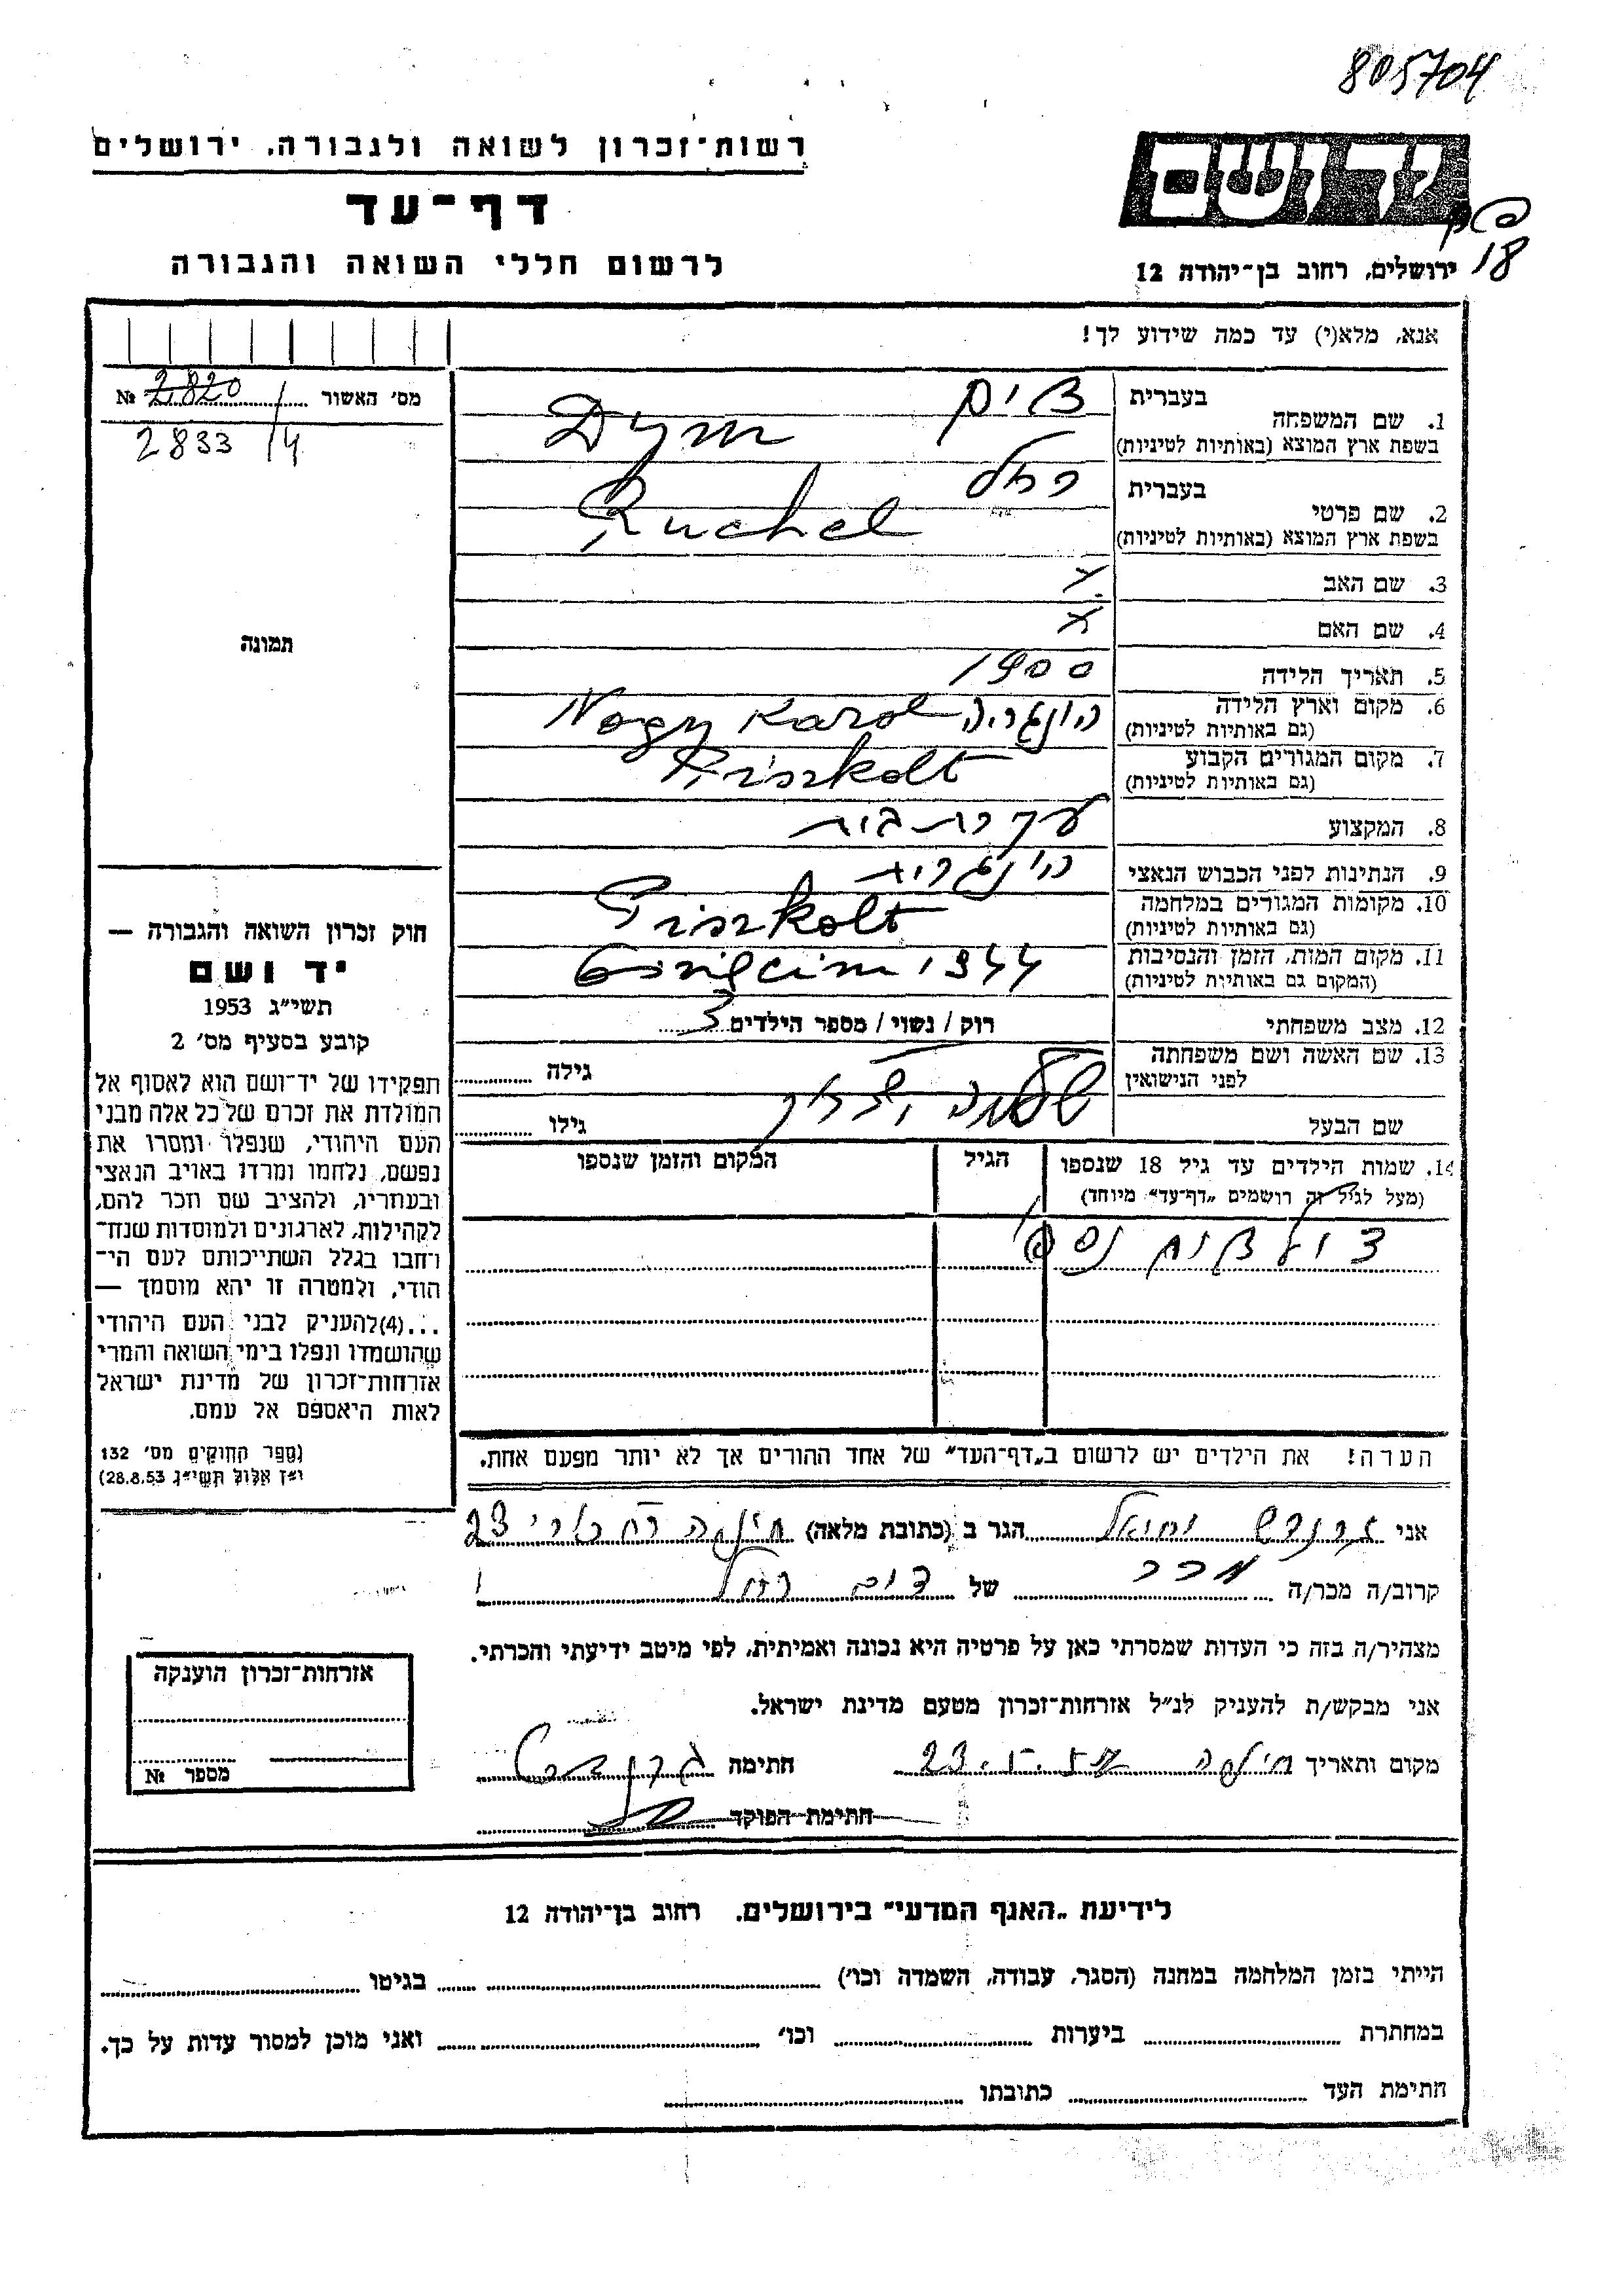 805704
רשות־זכרון לשואה ולגבורה, ירושלים
דף־עד
לרשום חללי השואה והגבורה
ידושם
18
ירושלים, רחוב בן־יהודה 12
אנא, מלא(י) עד כמה שידוע לך!
מס׳ האשור 2820 №
2833/4
תמונה
1. שם המשפחה
בעברית דים
בשפת ארץ המוצא (באותיות לטיניות) Dym
2. שם פרטי
בעברית רחל
בשפת ארץ המוצא (באותיות לטיניות) Ruchel
3. שם האב x
4. שם האם x
5. תאריך הלידה 1900
6. מקום וארץ הלידה (גם באותיות לטיניות) הונגריה Nogy Karol
7. מקום המגורים הקבוע (גם באותיות לטיניות) Piszkolt
8. המקצוע עקרת בית
9. הנתינות לפני הכבוש הנאצי הונגרית
10. מקומות המגורים במלחמה (גם באותיות לטיניות) Piszkolt
11. מקום המות, הזמן והנסיבות (המקום גם באותיות לטיניות) 1944
12. מצב משפחתי רוק / נשוי / מספר הילדים 3
13. שם האשה ושם משפחתה לפני הנישואין גילה
שם הבעל גילו
14. שמות הילדים עד גיל 18 שנספו הגיל המקום והזמן שנספו
(מעל לגיל זה רושמים „דף־עד״ מיוחד)
הערה! את הילדים יש לרשום ב„דף־העד״ של אחד ההורים אך לא יותר מפעם אחת.
חוק זכרון השואה והגבורה —
יד ושם
תשי״ג 1953
קובע בסעיף מס׳ 2
תפקידו של יד־ושם הוא לאסוף אל
המולדת את זכרם של כל אלה מבני
העם היהודי, שנפלו ומסרו את
נפשם, נלחמו ומרדו באויב הנאצי
ובעוזריו, ולהציב שם וזכר להם,
לקהילות, לארגונים ולמוסדות שנח־
רחבו בגלל השתייכותם לעם הי־
הודי, ולמטרה זו יהא מוסמך —
...(4)להעניק לבני העם היהודי
שהושמדו ונפלו בימי השואה והמרי
אזרחות־זכרון של מדינת ישראל
לאות היאספם אל עמם.
(ספר החוקים מס׳ 132
י״ז אלול תשי״ג 28.8.53)
אני הגר ב (כתובת מלאה) חיפה 23
קרוב/ה מכר/ה מכר של דים רחל
מצהיר/ה בזה כי העדות שמסרתי כאן על פרטיה היא נכונה ואמיתית, לפי מיטב ידיעתי והכרתי.
אני מבקש/ת להעניק לנ״ל אזרחות־זכרון מטעם מדינת ישראל.
מקום ותאריך חיפה חתימה
חתימת הפוקד
אזרחות־זכרון הוענקה
מספר №
לידיעת „האגף המדעי״ בירושלים, רחוב בן־יהודה 12
הייתי בזמן המלחמה במחנה (הסגר, עבודה, השמדה וכו׳) בגיטו
במחתרת ביערות וכו׳ ואני מוכן למסור עדות על כך.
חתימת העד כתובתו